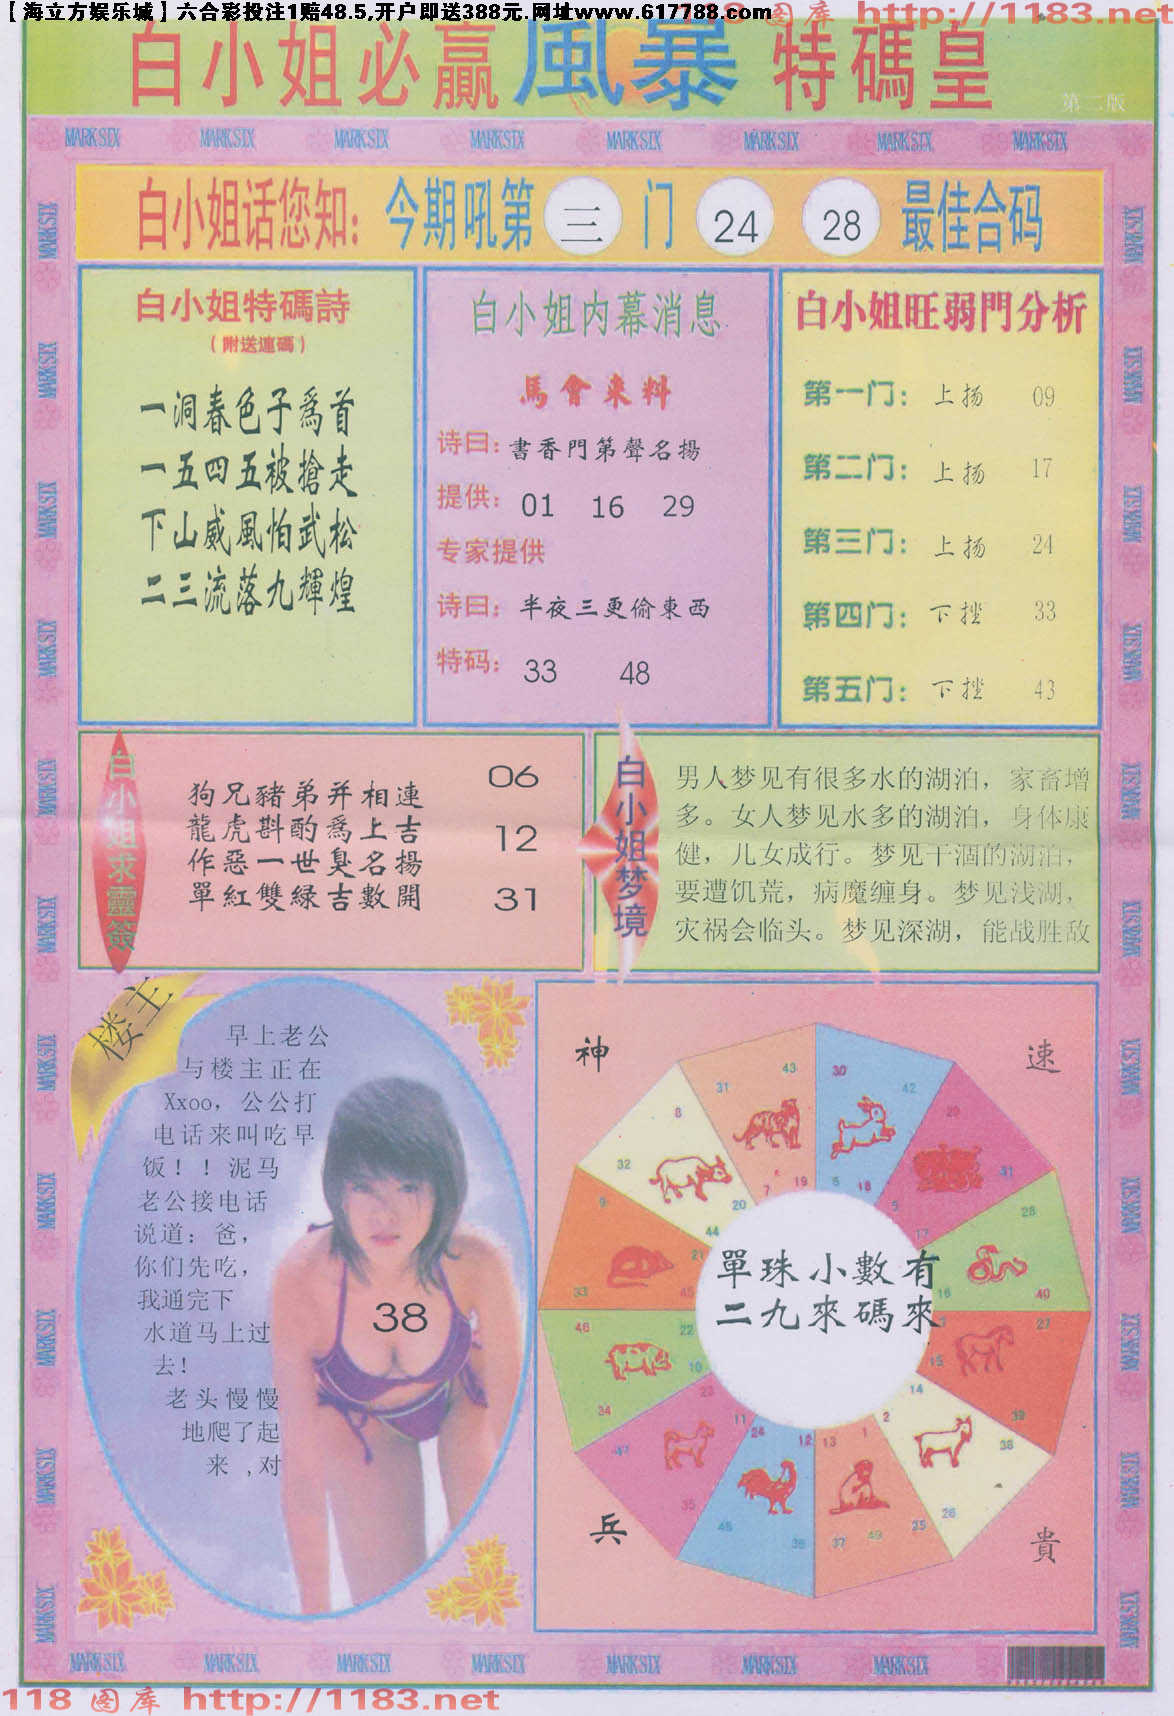 【海立方娱乐城】六合彩投注1赔48.5,开户即送388元.网址www.617788.com
图库 http://1183.net
白小姐必贏風暴特碼皇
第二版
MARK SIX MARK SIX MARK SIX MARK SIX MARK SIX MARK SIX MARK SIX MARK SIX
白小姐话您知: 今期吼第 三 门 24 28 最佳合码
白小姐特碼詩
(附送連碼)
一洞春色子爲首
一五四五被搶走
下山威風怕武松
二三流落九輝煌
白小姐内幕消息
馬會来料
诗曰: 書香門第聲名揚
提供: 01 16 29
专家提供
诗曰: 半夜三更偷東西
特码: 33 48
白小姐旺弱門分析
第一门: 上扬 09
第二门: 上扬 17
第三门: 上扬 24
第四门: 下挫 33
第五门: 下挫 43
白小姐求靈簽
狗兄豬弟并相連
龍虎斟酌爲上吉
作惡一世臭名揚
單紅雙緑吉數開
06
12
31
白小姐梦境
男人梦见有很多水的湖泊，家畜增
多。女人梦见水多的湖泊，身体康
健，儿女成行。梦见干涸的湖泊，
要遭饥荒，病魔缠身。梦见浅湖，
灾祸会临头。梦见深湖，能战胜敌
楼主
早上老公
与楼主正在
Xxoo，公公打
电话来叫吃早
饭！！泥马
老公接电话
说道：爸，
你们先吃，
我通完下
水道马上过
去！
老头慢慢
地爬了起
来 ,对
38
神
速
兵
貴
單珠小數有
二九來碼來
43 31 19 7
30 42 6 18
29 41 5 17
28 40 16
27 39 15
14 2 38 26
1 13 25 37 49
12 24 36 48
11 23 35 47
22 10 46 34
9 21 33 45
8 20 32 44
MARK SIX MARK SIX MARK SIX MARK SIX MARK SIX MARK SIX MARK SIX
118 图库 http://1183.net